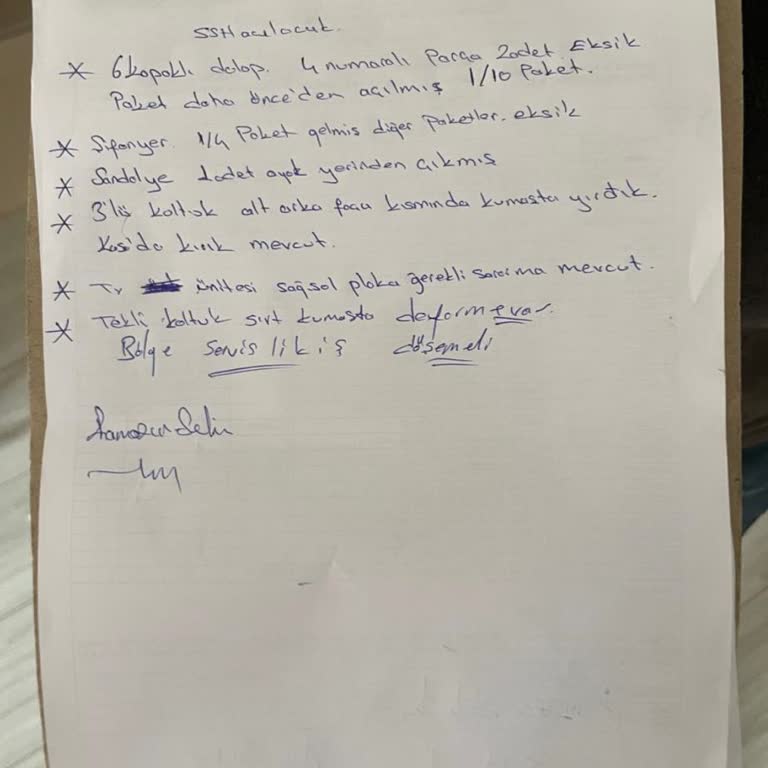 SSH açılacak.
* 6 kapaklı dolap. 4 numaralı Parça 2 adet Eksik
Paket daha önce'den açılmış 1/10 Paket.
* Şifonyer. 1/4 Paket gelmiş diğer Paketler. eksik
* Sandalye 1 adet ayak yerinden çıkmış
* 3'lü koltuk alt arka kısmında kumaşta yırtık.
kırık mevcut.
* Tv ünitesi sağ sol plaka gerekli mevcut.
* Tekli koltuk sırt kumaşta deforme var.
Bölge Servislik iş döşemeli